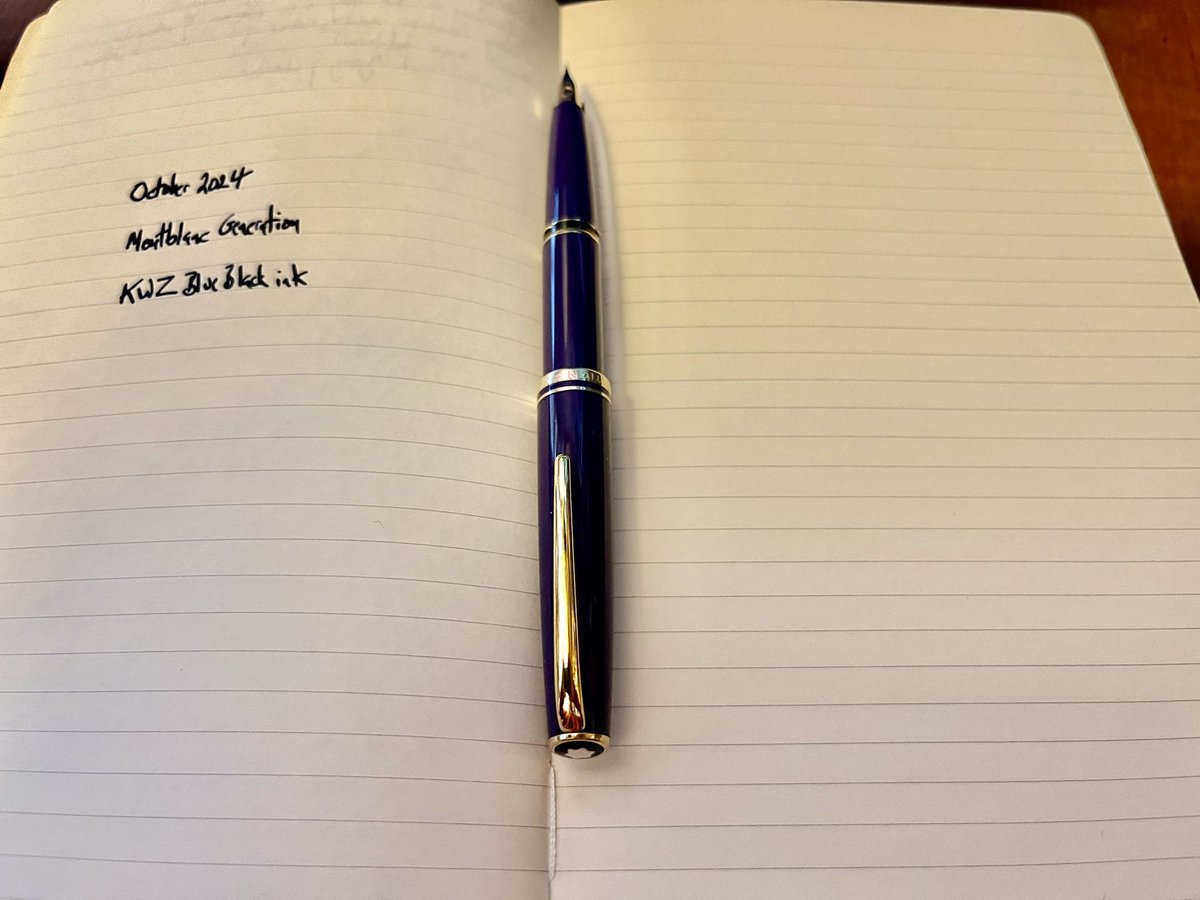 October 2024
Montblanc Generation
KWZ Blue Black ink